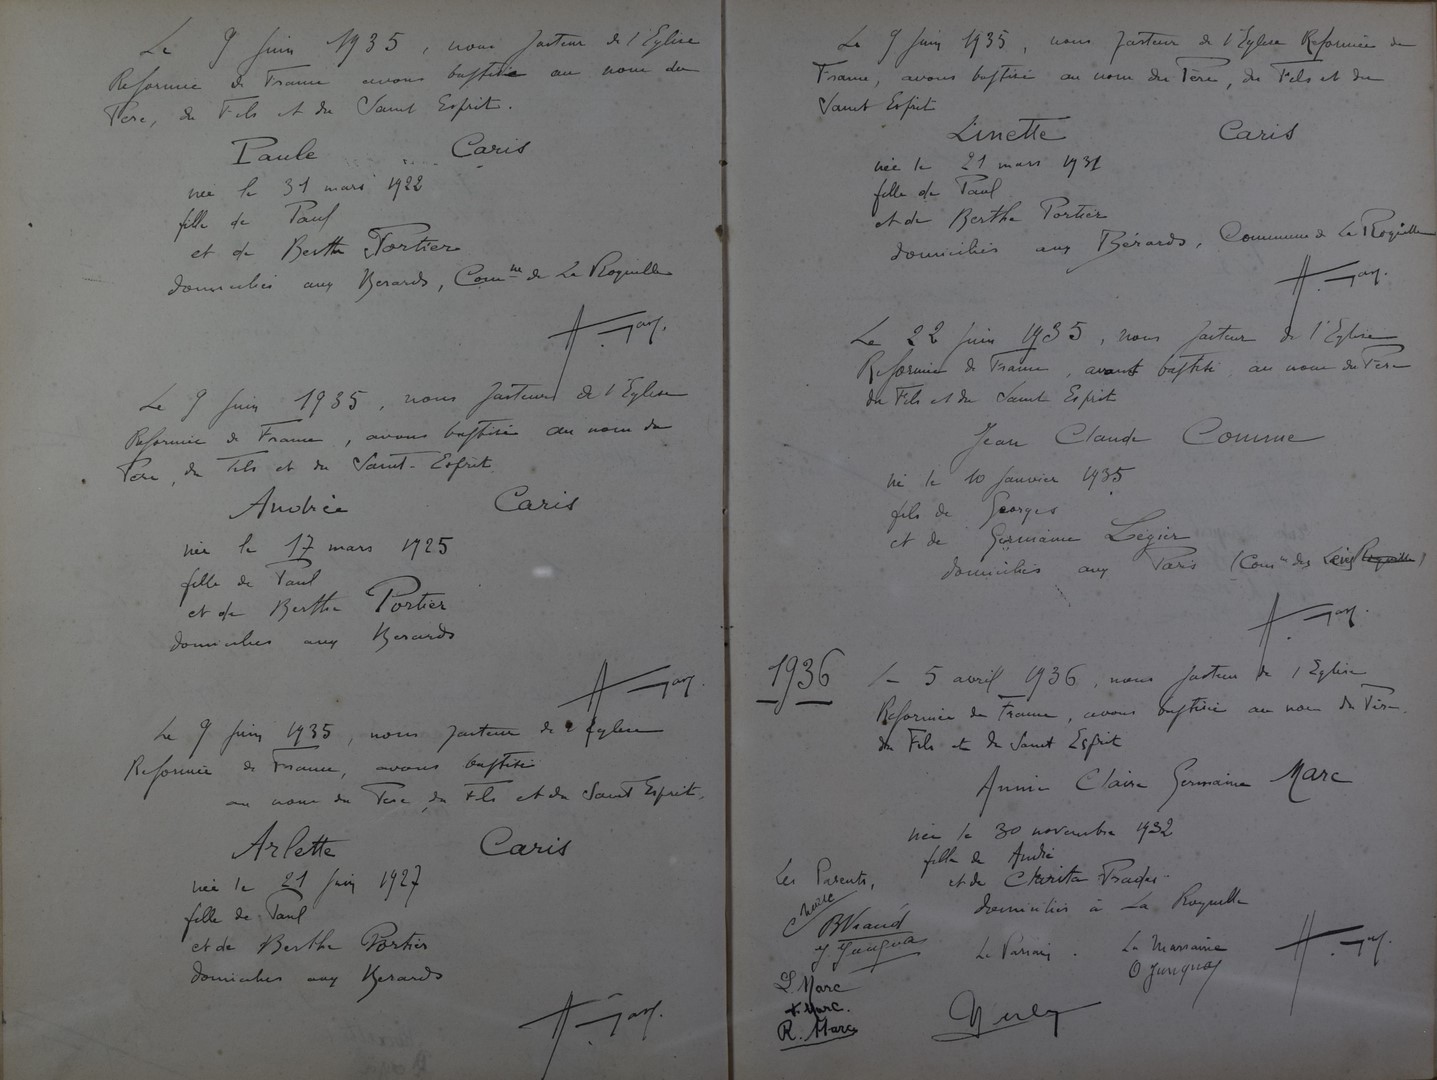 Le 9 Juin 1935, nous Pasteur de l'Eglise
Réformée de France avons baptisé au nom du
Père, du Fils et du Saint Esprit.
Paule Caris
née le 31 mars 1922
fille de Paul
et de Berthe Portier
domiciliés aux Bérards, Comne de La Roquille
Le 9 Juin 1935, nous Pasteur de l'Eglise
Réformée de France, avons baptisé au nom du
Père, du Fils et du Saint-Esprit.
Andrée Caris
née le 17 mars 1925
fille de Paul
et de Berthe Portier
domiciliés aux Bérards
Le 9 Juin 1935, nous Pasteur de l'Eglise
Réformée de France, avons baptisé
au nom du Père, du Fils et du Saint Esprit.
Arlette Caris
née le 21 Juin 1927
fille de Paul
et de Berthe Portier
domiciliés aux Bérards
Le 9 Juin 1935, nous Pasteur de l'Eglise Réformée de
France, avons baptisé au nom du Père, du Fils et du
Saint Esprit
Linette Caris
née le 21 mars 1931
fille de Paul
et de Berthe Portier
domiciliés aux Bérards, Commune de La Roquille
Le 22 Juin 1935, nous Pasteur de l'Eglise
Réformée de France, avons baptisé au nom du Père
du Fils et du Saint Esprit
Jean Claude Comme
né le 10 Janvier 1935
fils de Georges
et de Germaine Légier
domiciliés aux Paris (Comne des
1936
Le 5 avril 1936, nous Pasteur de l'Eglise
Réformée de France, avons baptisé au nom du Père
du Fils et du Saint Esprit
Annie Claire Germaine Marc
née le 30 novembre 1932
fille de André
et de Charita Pradai
domiciliés à La Roquille
Les Parents,
Le Parrain. La Marraine
L Marc
Marc.
R. Marc